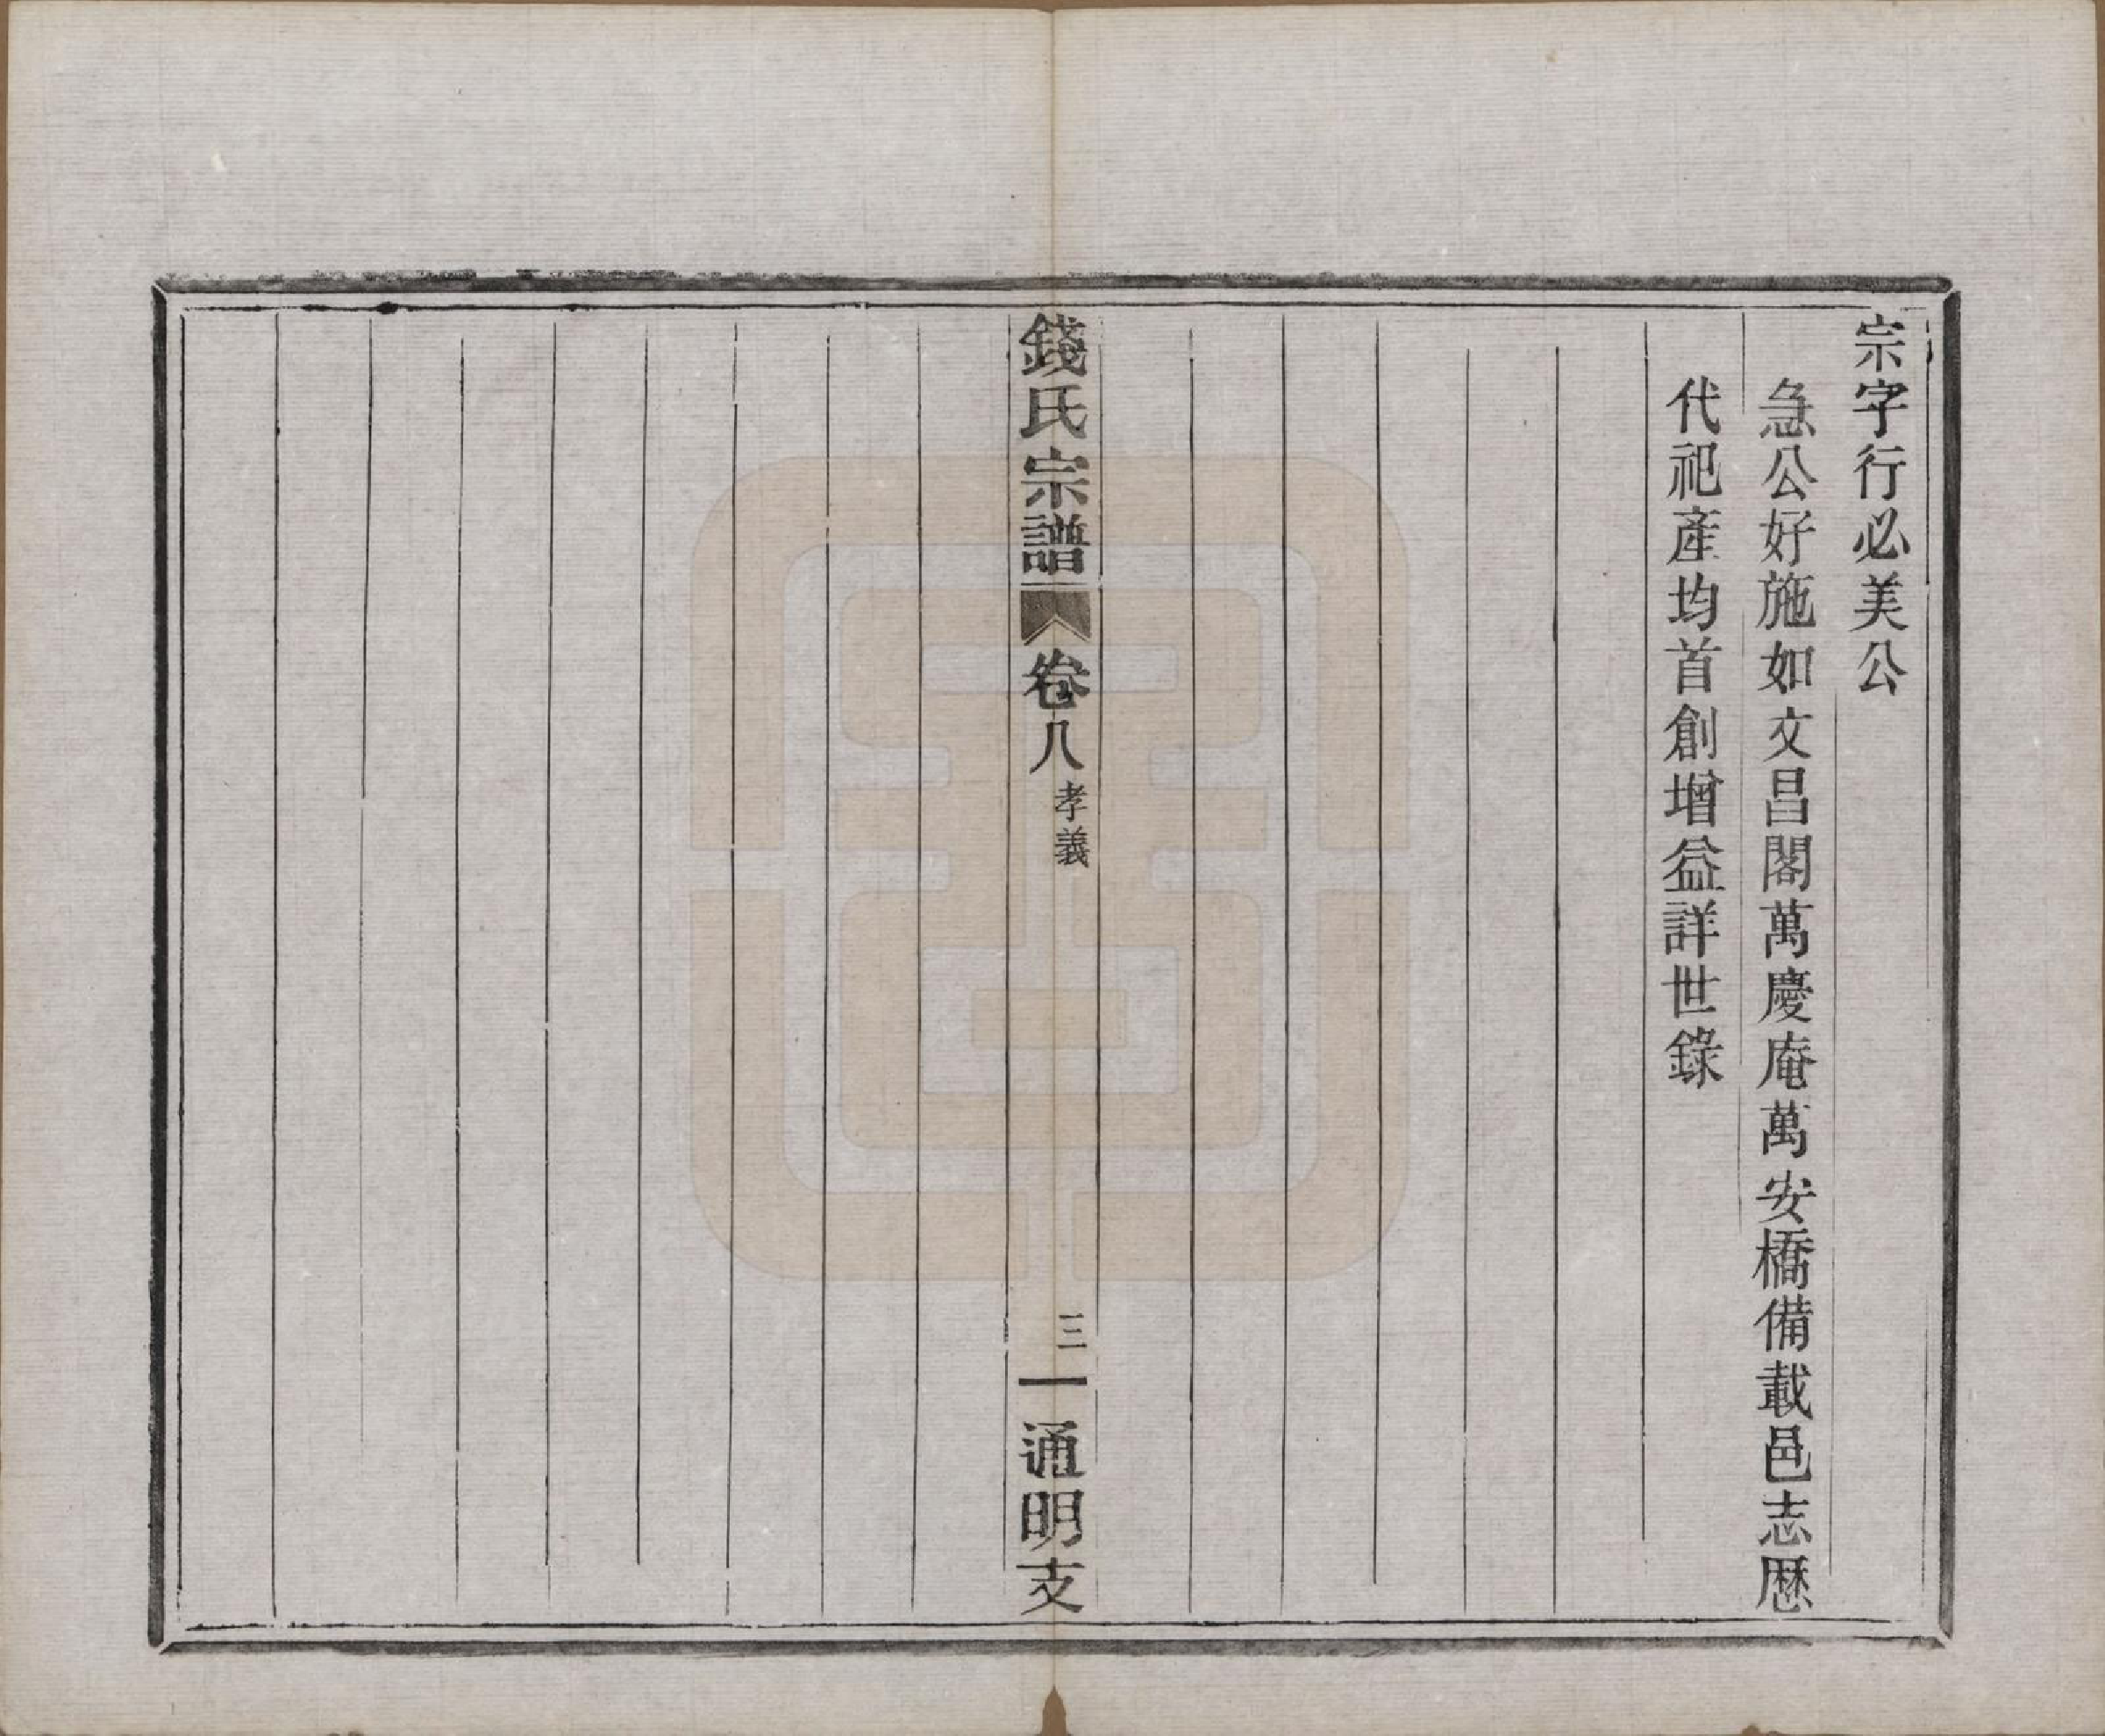 宗字行必美公
急公好施如文昌閣萬慶庵萬安橋備載邑志歷
代祀產均首創增益詳世錄
錢氏宗譜 卷八 孝義 三 通明支